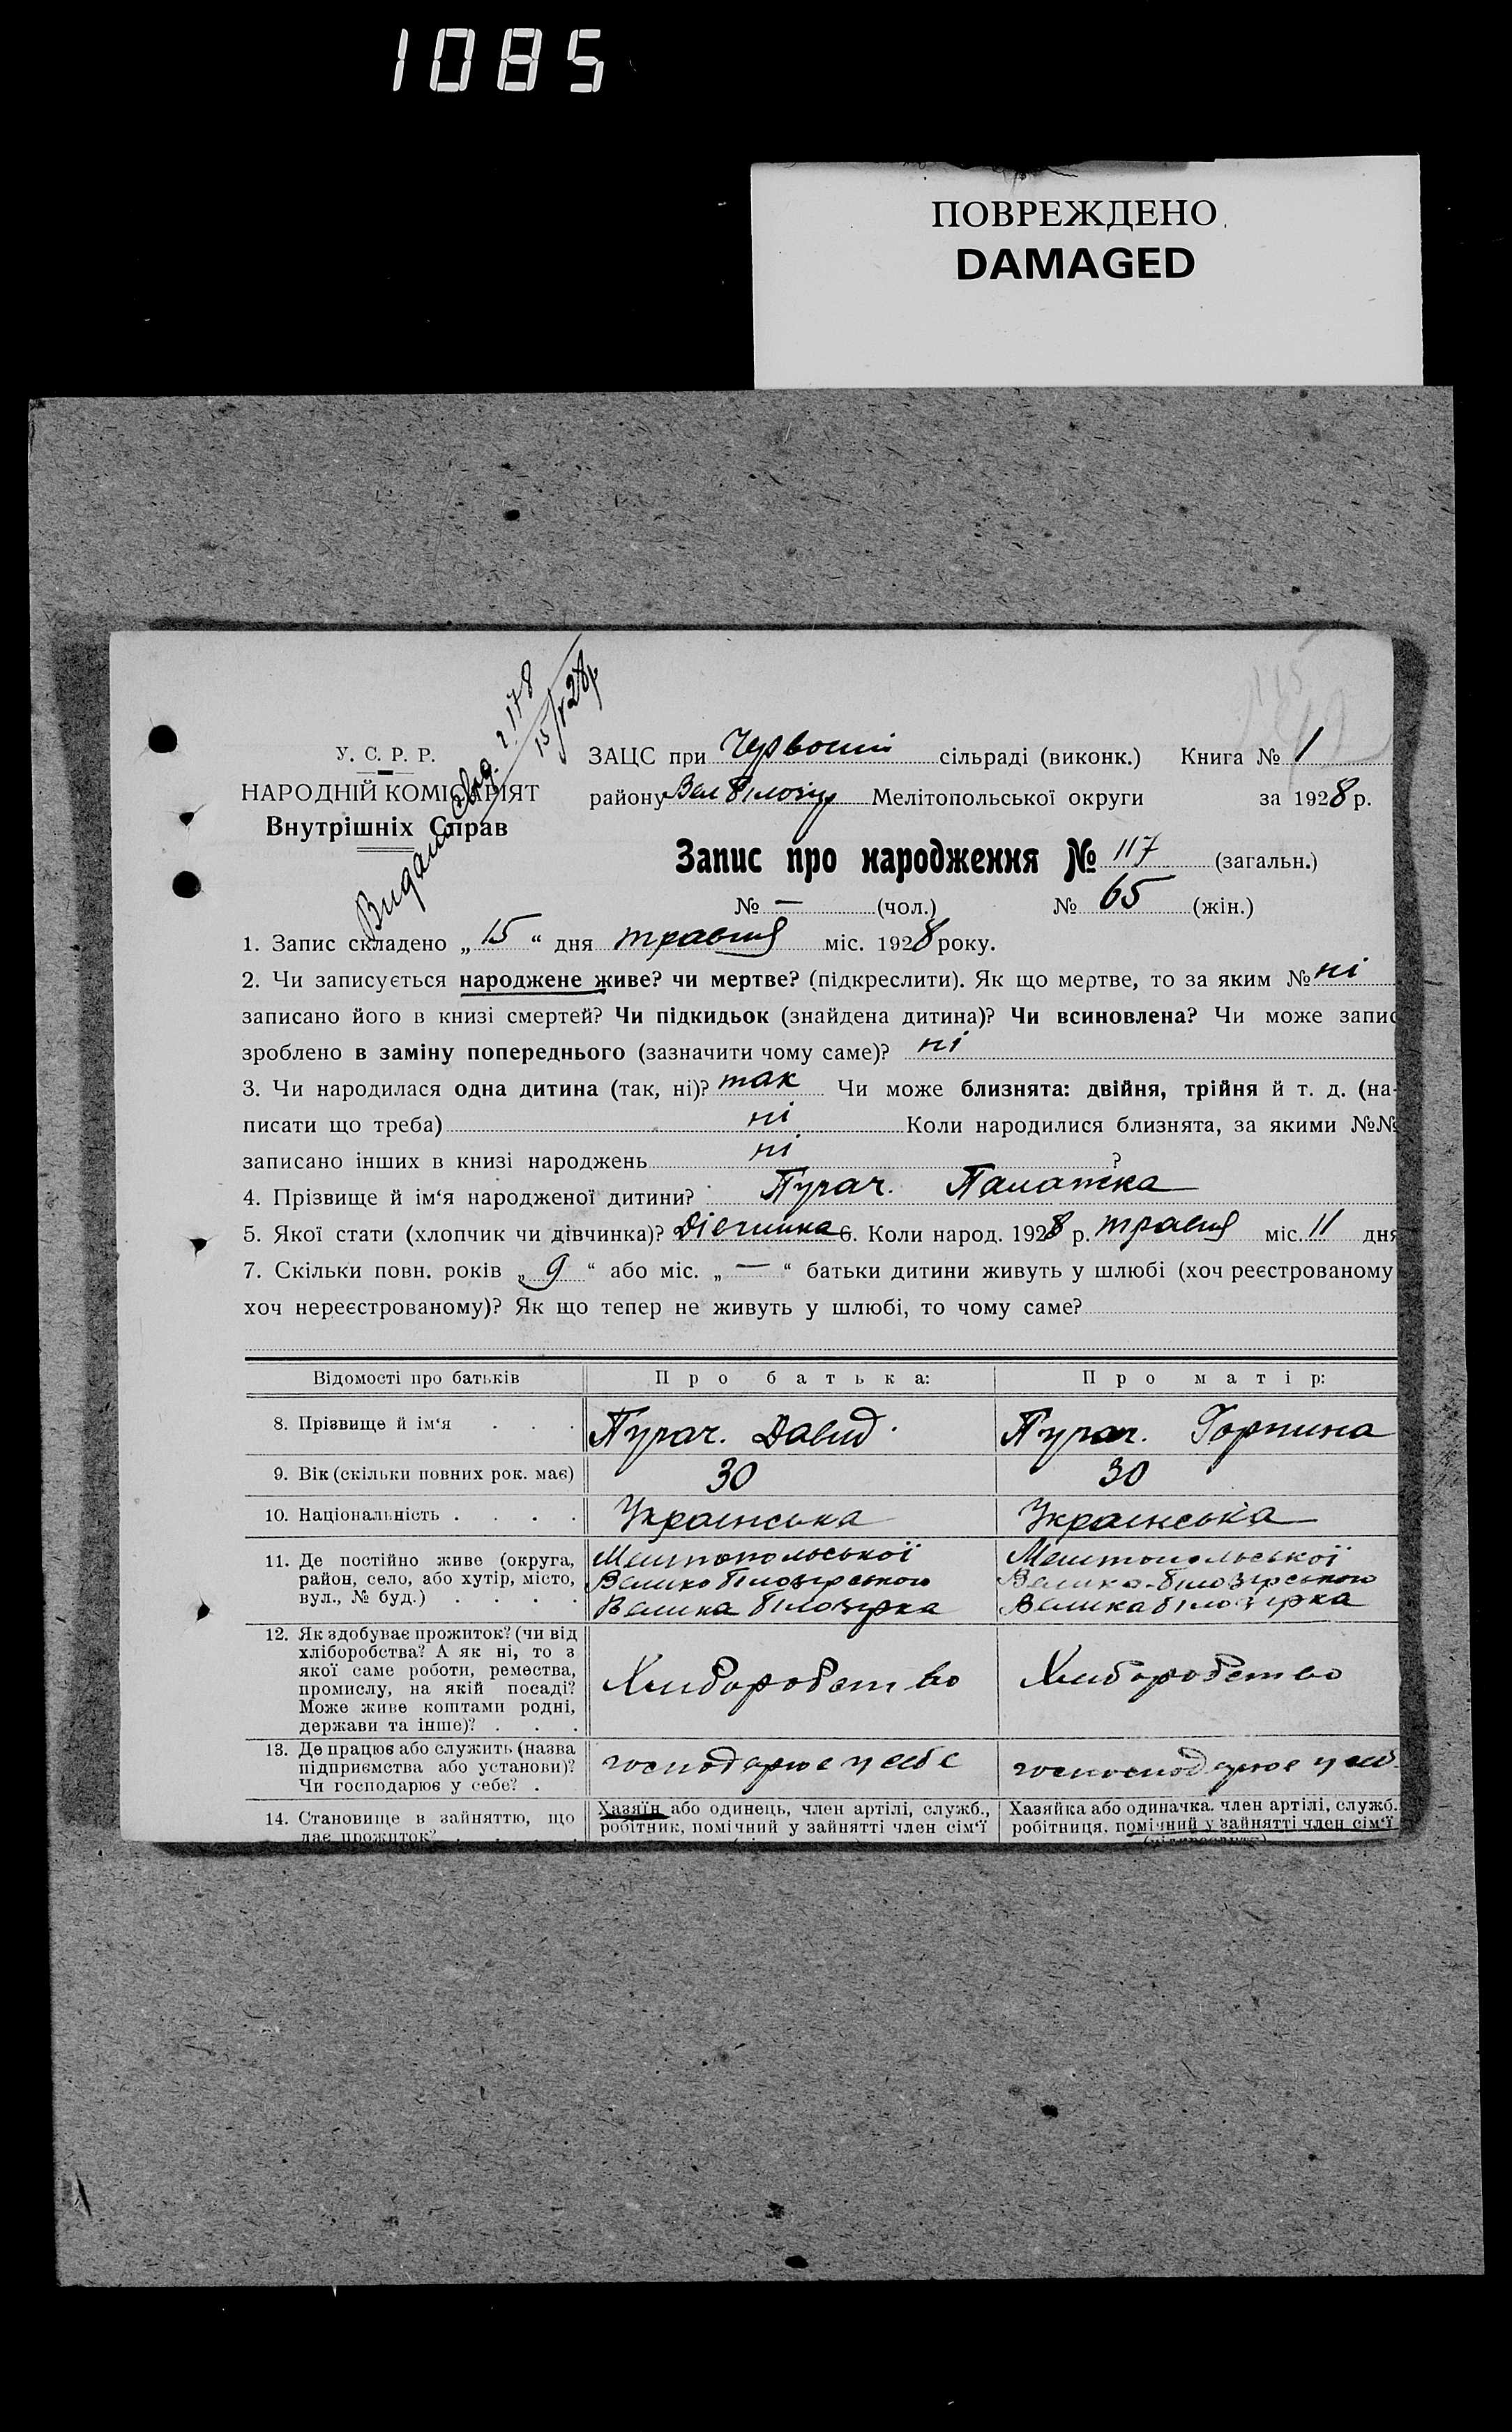 1085
ПОВРЕЖДЕНО
DAMAGED
Видани свід. 178
15/V 28р
У. С. Р. Р.
НАРОДНІЙ КОМІСАРІЯТ
Внутрішніх Справ
ЗАЦС при Червоній сільраді (виконк.) Книга № 1
району Вел Білозір Мелітопольської округи за 1928 р.
Запис про народження № 117 (загальн.)
№ — (чол.) № 65 (жін.)
1. Запис складено „ 15 “ дня травня міс. 1928 року.
2. Чи записується народжене живе? чи мертве? (підкреслити). Як що мертве, то за яким № ні
записано його в книзі смертей? Чи підкидьок (знайдена дитина)? Чи всиновлена? Чи може запис
зроблено в заміну попереднього (зазначити чому саме)? ні
3. Чи народилася одна дитина (так, ні)? так Чи може близнята: двійня, трійня й т. д. (на-
писати що треба) ні Коли народилися близнята, за якими №№
записано інших в книзі народжень ні ?
4. Прізвище й ім‘я народженої дитини? Пугач. Палажка
5. Якої стати (хлопчик чи дівчинка)? Дівчинка 6. Коли народ. 1928 р. травня міс. 11 дня
7. Скільки повн. років „ 9 “ або міс. „ — “ батьки дитини живуть у шлюбі (хоч реєстрованому
хоч нереєстрованому)? Як що тепер не живуть у шлюбі, то чому саме?
Відомості про батьків Про батька: Про матір:
8. Прізвище й ім‘я . . . Пугач. Давид. Пугач. Горпина
9. Вік (скільки повних рок. має) 30 30
10. Національність . . . . Українська Українська
11. Де постійно живе (округа, Мелітопольської Мелітопольської
район, село, або хутір, місто, Велико Білозірського Велико-Білозірського
вул., № буд.) . . . . Велика Білозірка Велика Білозірка
12. Як здобуває прожиток? (чи від
хліборобства? А як ні, то з
якої саме роботи, ремества,
промислу, на якій посаді? Хліборобство Хліборобство
Може живе коштами родні,
держави та інше)? . . .
13. Де працює або служить (назва
підприємства або установи)? господарює у себе у себ.
Чи господарює у себе? .
14. Становище в зайняттю, що Хазяїн або одинець, член артілі, служб., Хазяйка або одиначка. член артілі, служб.
дає прожиток? . . . . робітник, помічний у зайнятті член сім‘ї робітниця, помічний у зайнятті член сім‘ї